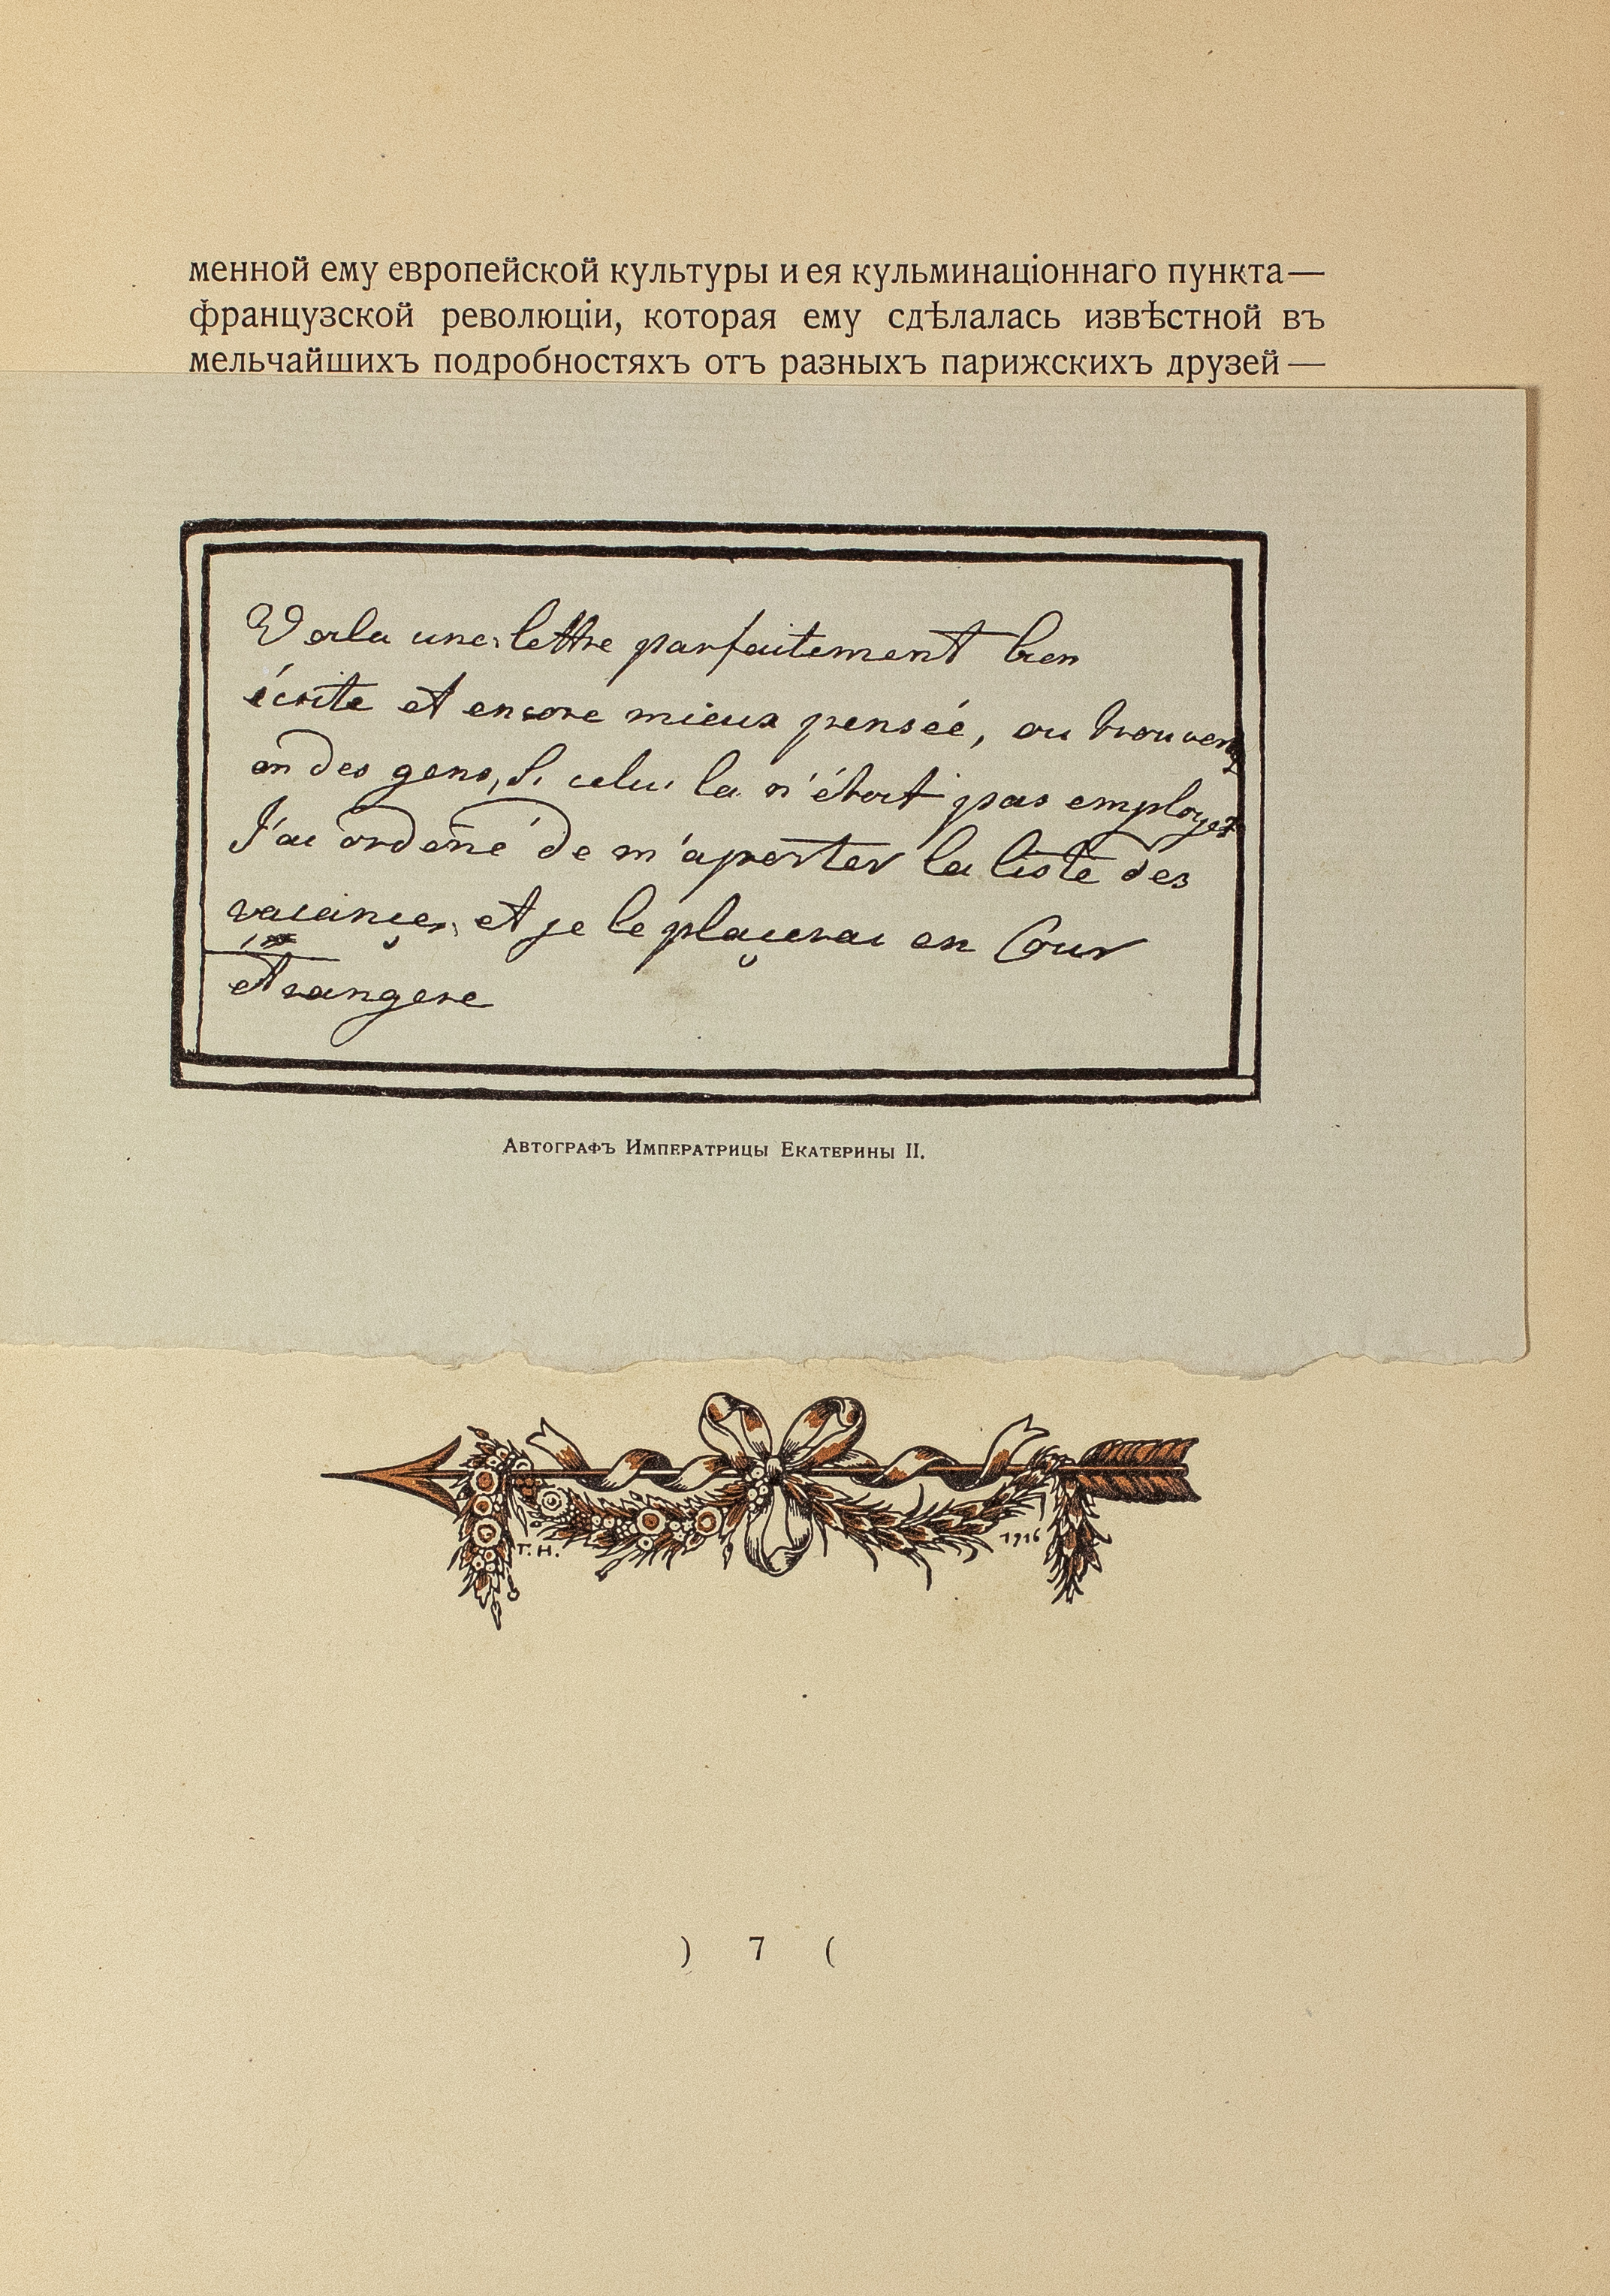 менной ему европейской культуры и ея кульминаціоннаго пункта—
французской революціи, которая ему сдѣлалась извѣстной въ
мельчайшихъ подробностяхъ отъ разныхъ парижскихъ друзей —
Voila une lettre parfaitement bien
écrite et encore mieux pensée, ou trouvera
on des gens, si celui la n'étoit pas employez
J'ai ordoné de m'aporter la liste des
vacances, et je le plaçerai en Cour
etrangere
Автографъ Императрицы Екатерины II.
Г. Н. 1916
) 7 (